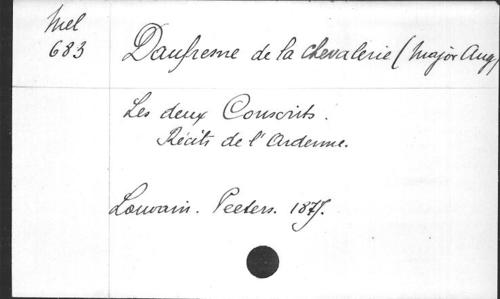 Mel
683
Daufresne de la Chevalerie (Major Aug)
Les deux Conscrits.
Récits de l'Ardenne.
Louvain. Peeters. 1875.